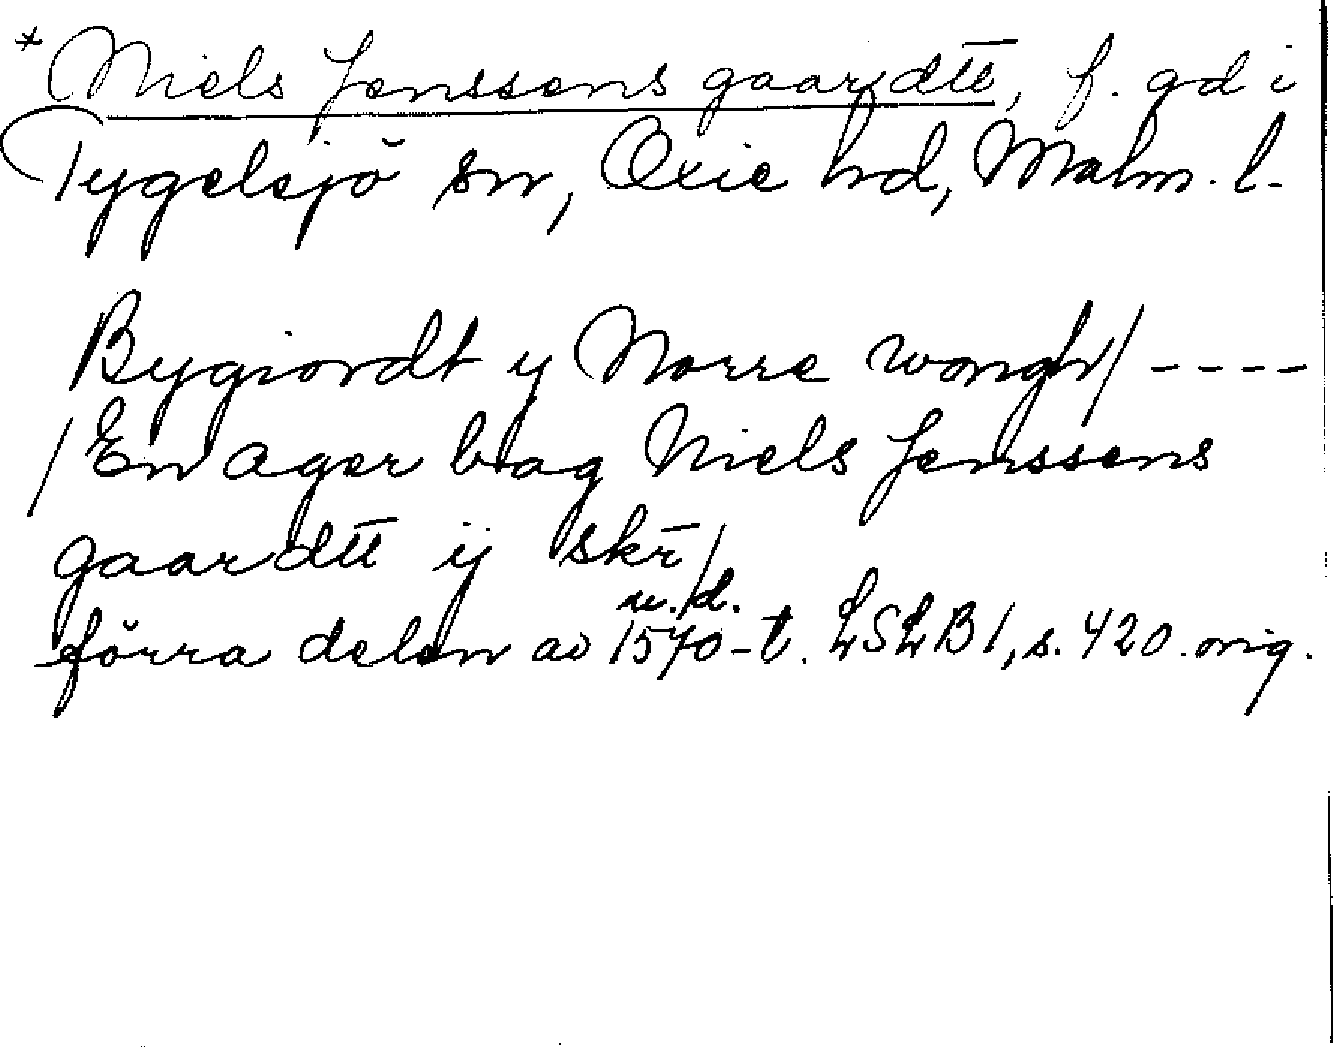 * Niels Jenssens gaardtt, f. gd i
Tygelsjö sn, Oxie hd, Malm. l.
Bygiordt y Norre wongh/ ----
/En ager bag Niels Jenssens
gaardtt ij skr/
u. d.
förra delen av 1570-t. LSLB1, s. 420. orig.